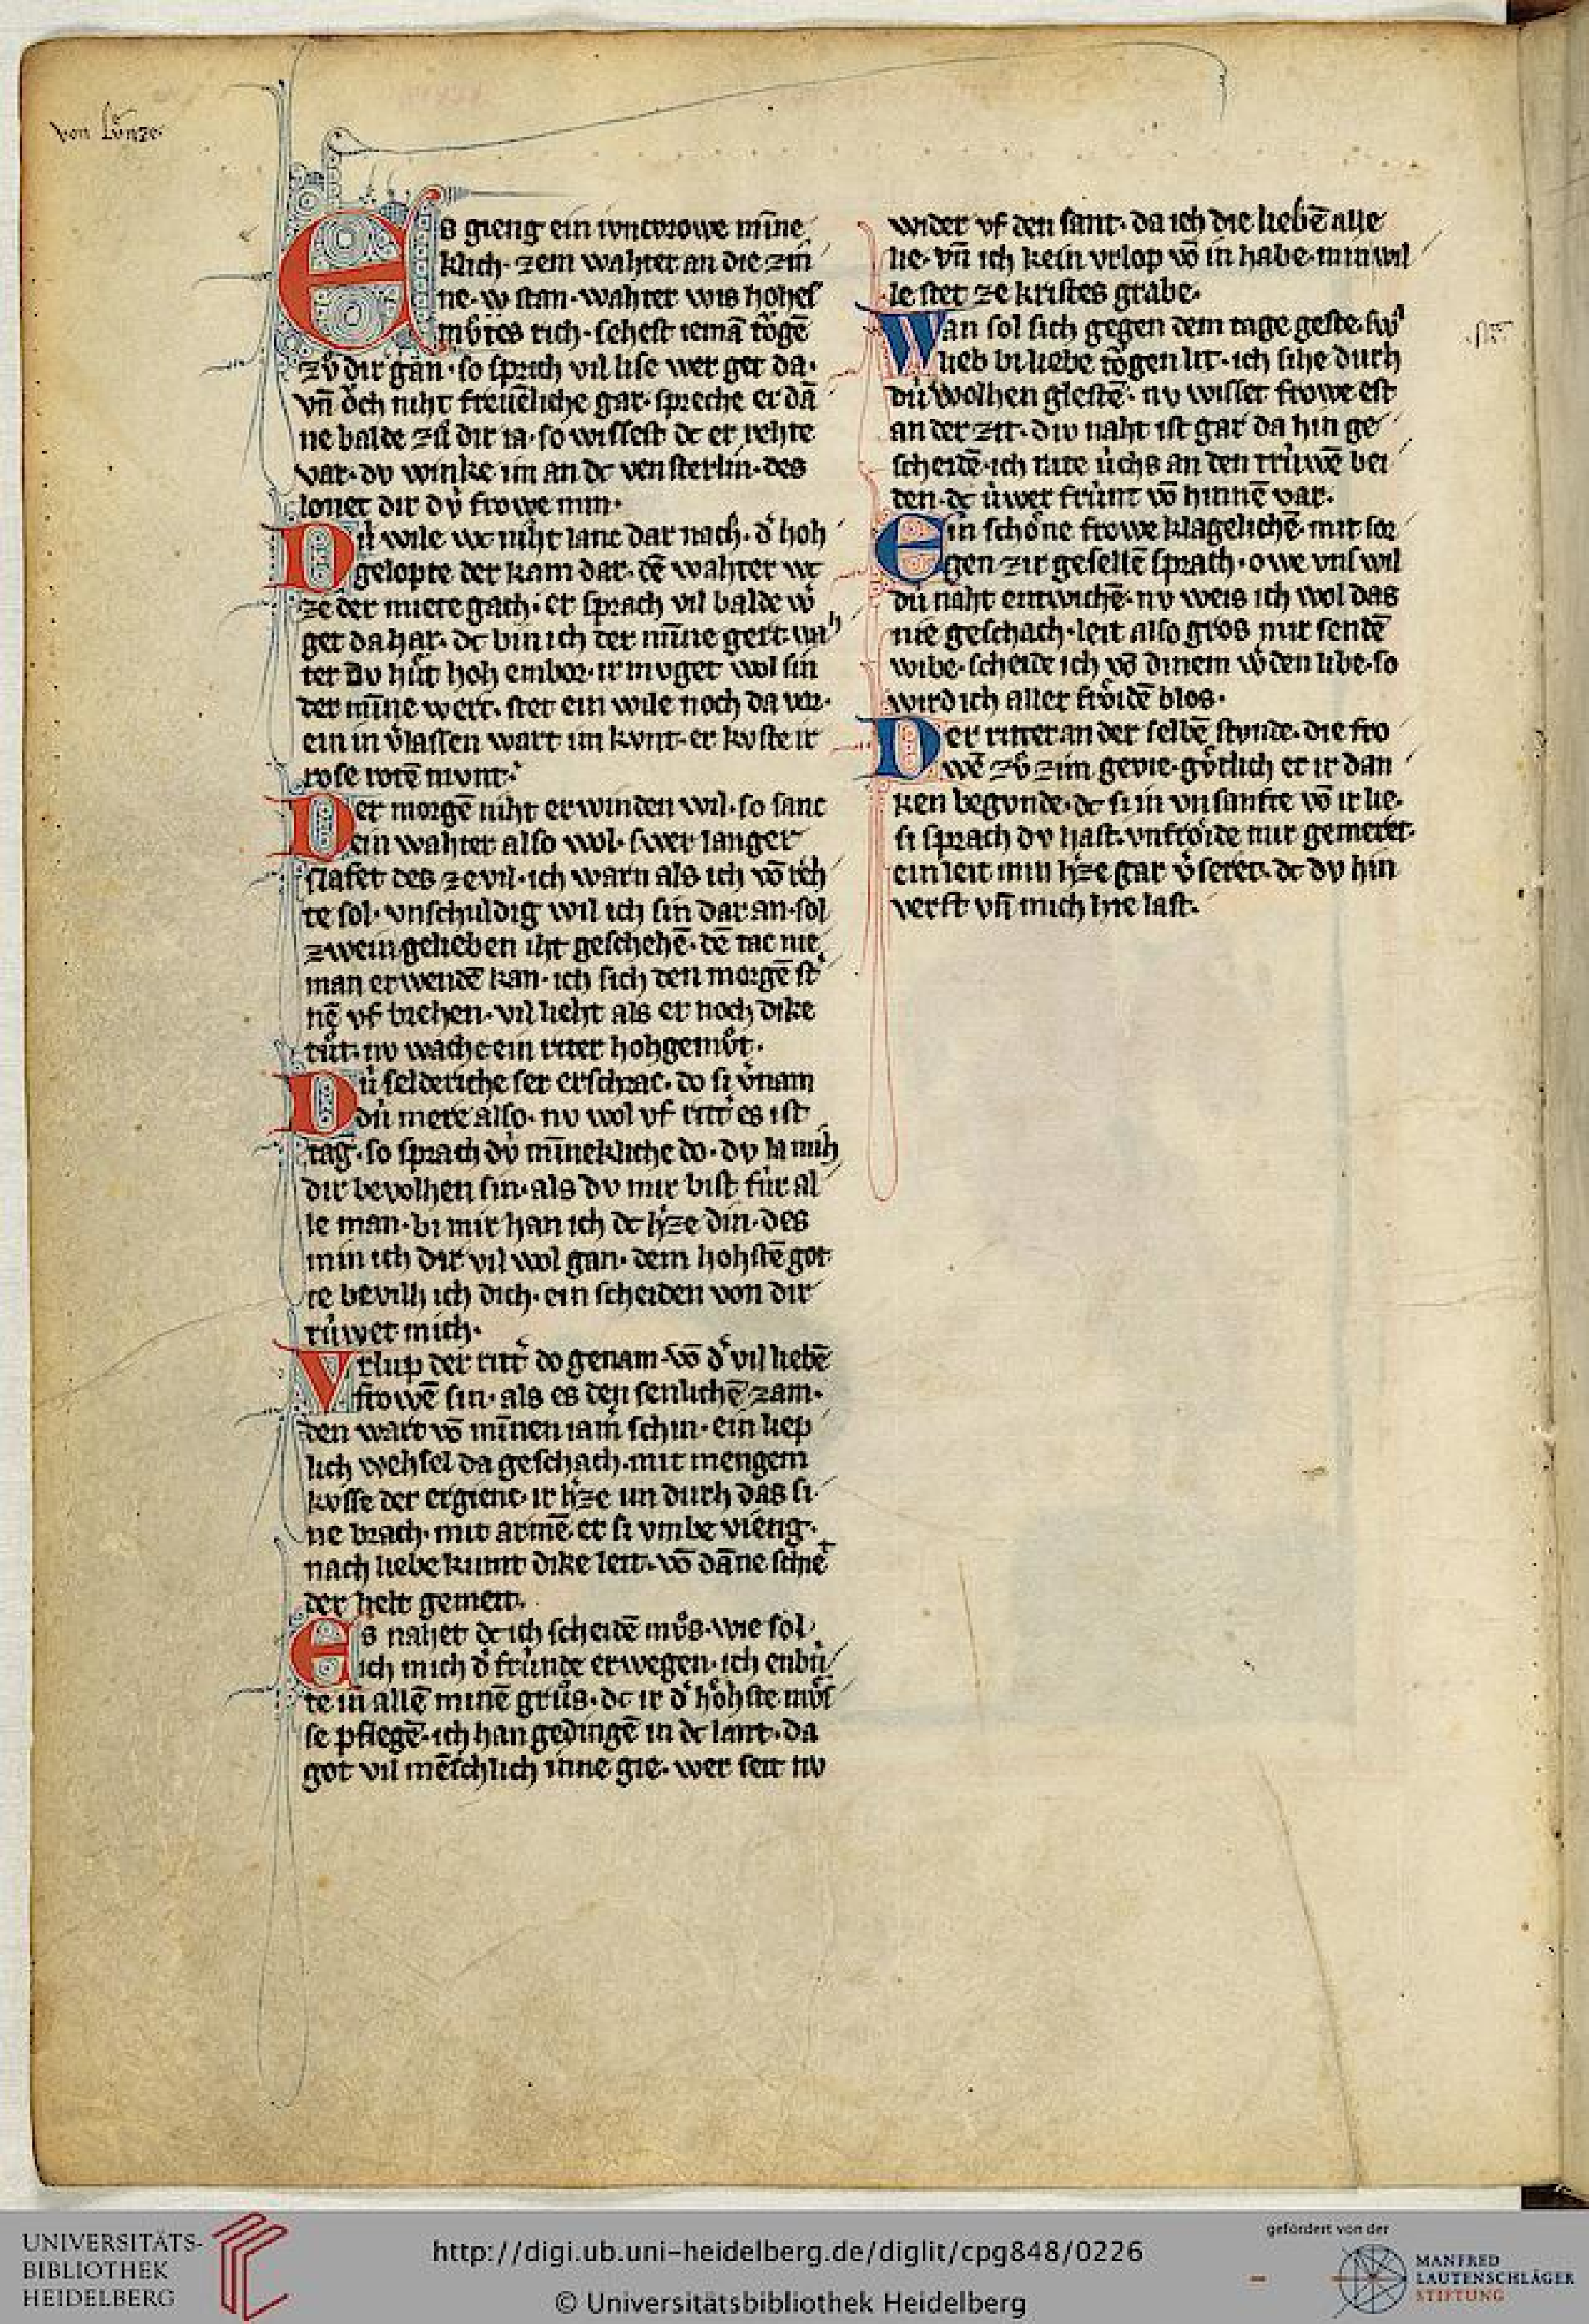 von Lúnze.
Es gieng ein iuncvrowe mīne
klich. zem wahter an die zin
ne. vō stan. wahter wis hohes
mvͦtes rich. sehest iemā tǒgē
zvͦ dir gan. so sprich vil lise wer get da.
vn̄ ǒch niht freuēliche gar. spreche er dā
ne balde zů dir ia. so wissest dc er rehte
var. dv winke im an dc vensterlin. des
lonet dir dv̓ frowe min.
Dú wile wc niht lanc dar nach. d̓ hoh
gelopte der kam dar. dē wahter wc
ze der miete gach. er sprach vil balde w̓
get da har. dc bin ich der mīne gert. wah
ter dv hůt hoh embor. ir mvget wol sin
der mīne wert. stet ein wile noch da vor.
ein in v̓lassen wart im kvnt. er kvste ir
rose rotē mvnt.
Der morgē niht erwinden wil. so sanc
ein wahter also wol. swer langer
slafet des ze vil. ich warn als ich vō reh
te sol. vnschuldig wil ich sin dar an. sol
zwein gelieben iht geschehē. dē tac nie
man erwendē kan. ich sich den morgē st̓
nē vf brehen. vil lieht als er noch dike
tůt. nv wache ein ritter hohgemvͦt.
Dú selderiche ser erschrac. do si v̓nam
dú mere also. nv wol vf ritt̓ es ist
tag. so sprach dv̓ mīnekliche do. dv la mih
dir bevolhen sin. als dv mir bist fúr al
le man. bi mir han ich dc h̓ze din. des
min ich dir vil wol gan. dem hohstē got
te bevilh ich dich. ein scheiden von dir
rúwet mich.
Vrlup der ritt̓ do genam. vō d̓ vil liebē
frowē sin. als es den senlichē zam.
den wart vō mīnen iam̓ schin. ein liep
lich wehsel da geschach. mit mengem
kvsse der ergienc. ir h̓ze im durh das si
ne brach. mit armē er si vmbe vieng.
nach liebe kumt dike leit. vō dāne schiet
der helt gemeit.
Es nahet dc ich scheidē mvͦs. wie sol
ich mich d̓ frúnde erwegen. ich enbú
te in allē minē grůs. dc ir d̓ hǒhste mvͦs
se pflegē. ich han gedingē in dc lant. da
got vil mēschlich inne gie. wer seit nv
wider vf den sant. da ich die liebē alle
lie. vn̄ ich kein vrlop vō in habe. min wil
le stet ze kristes grabe.
Wan sol sich gegen dem tage geste. sw̓
lieb bi liebe tǒgen lit. ich sihe durh
dú wolken glestē. nv wisset frowe est
an der zit. div naht ist gar da hin ge
scheidē. ich rate úchs an den trúwē bei
den. dc úwer frúnt vō hinnē var.
Ein schǒne frowe klagelichē. mit sor
gen zir gesellē sprach. owe vns wil
dú naht entwichē. nv weis ich wol das
nie geschach. leit also gros mir sendē
wibe. scheide ich vō dinem w̓den libe. so
wird ich aller frǒidē blos.
Der ritter an der selbē stvnde. die fro
wē zvͦ zim gevie. gvͤtlich er ir dan
ken begvnde. dc si in vnsanfte vō ir lie.
si sprach dv hast. vnfrǒide mir gemeret.
ein leit min h̓ze gar v̓seret. dc dv hin
verst vn̄ mich hie last.
UNIVERSITÄTS-
BIBLIOTHEK
HEIDELBERG
http://digi.ub.uni-heidelberg.de/diglit/cpg848/0226
© Universitätsbibliothek Heidelberg
gefördert von der
MANFRED
LAUTENSCHLÄGER
STIFTUNG